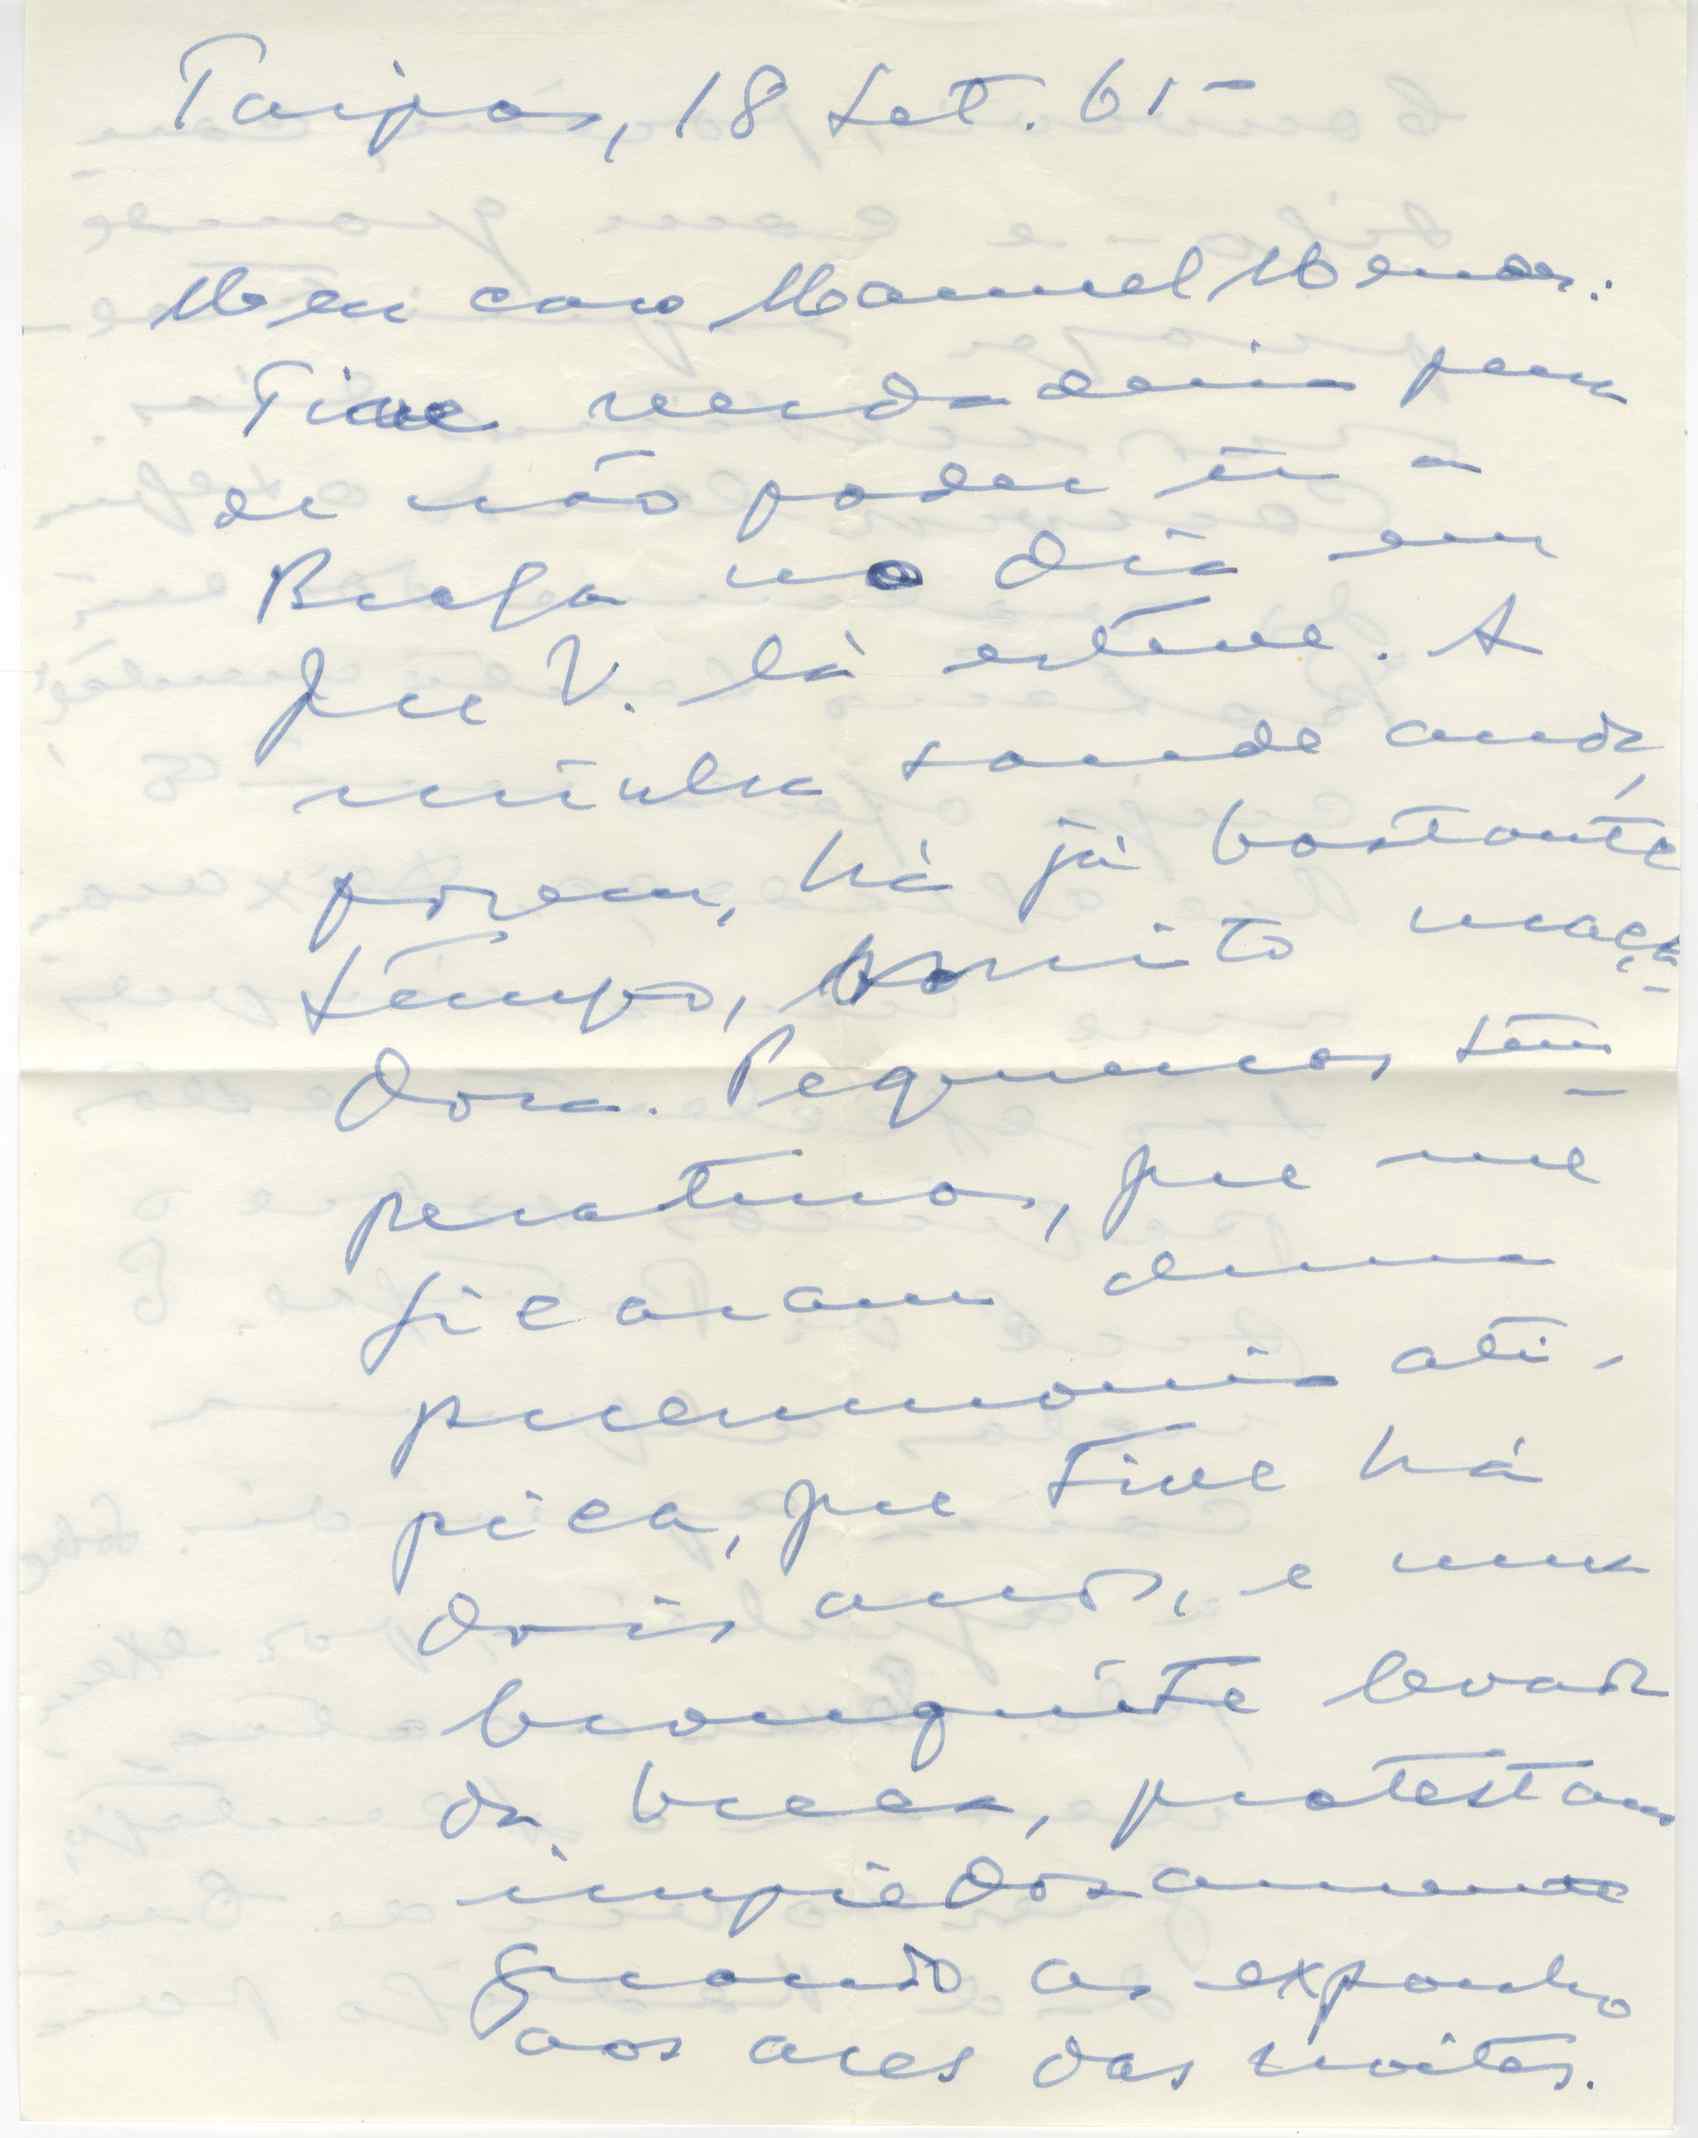 Taipas, 18 Set. 61-
Meu caro Manuel Mendes:
Tive verdadeira pena
de não poder ir a
Braga no dia em
que V. lá esteve. A
minha saude anda,
porem, há já bastante
tempo, muito maça-
dora. Pequenos tem-
peratinas, que me
ficaram duma
pneumonia atí-
pica, que tive há
dois anos, e uma
bronquite levada
da breca, protestam
impiedosamente
quando as exponho
aos ares das noites.